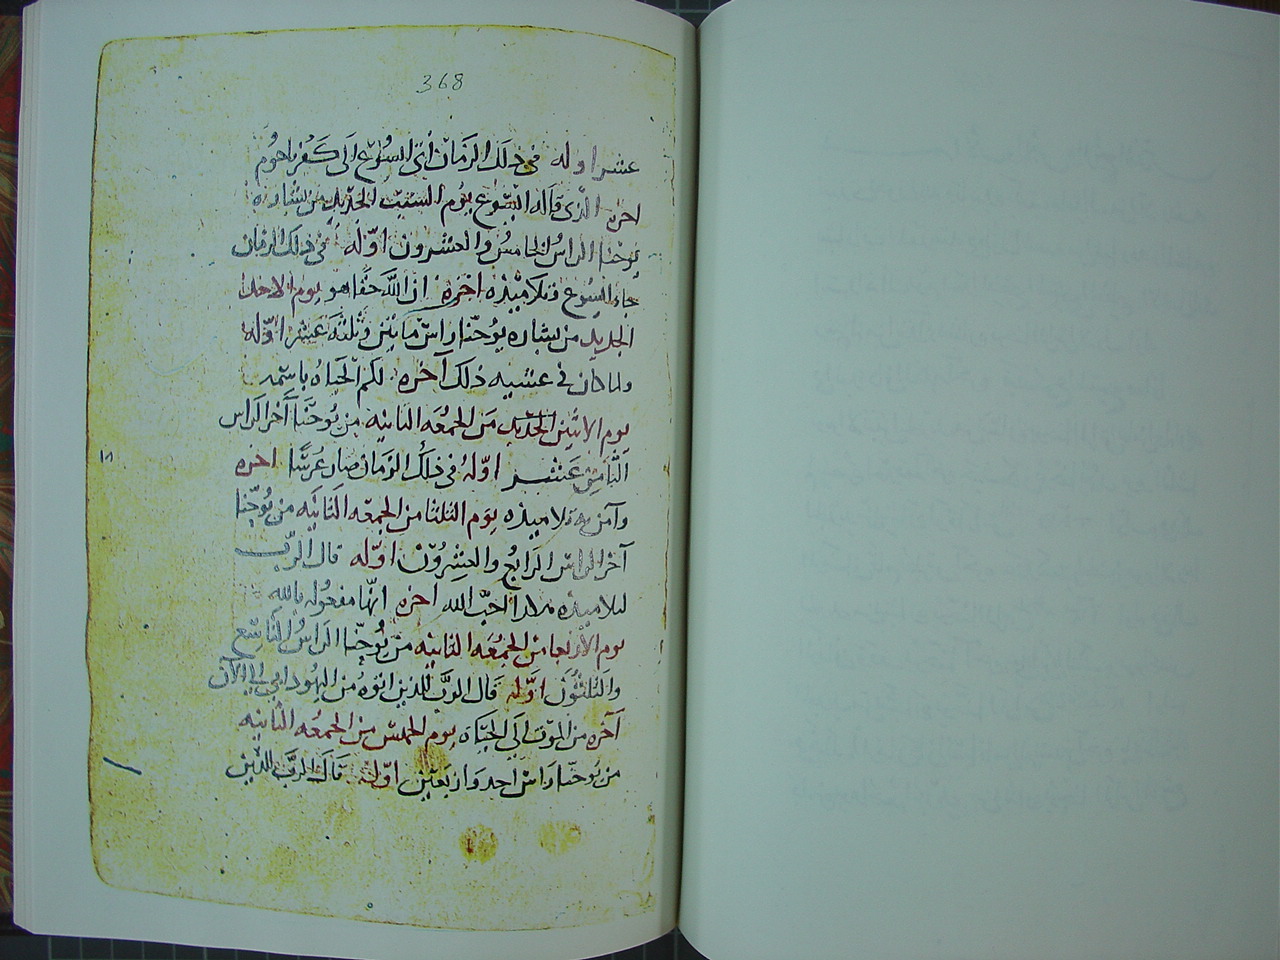 368
عشر اوله في ذلك الزمان أتى اليسُوع الى كَفرناحُوم
اخره الذي قاله اليسوع يوم السبت الجديد من بشاره
يوحنا الراس الخامس والعشرون اوّله في ذلك الزمان
جاء اليسوع وتلاميذه اخره ان الله حقا هو يوم الاحد
الجديد من بشاره يوحنّا راس مائتين وثلثة عشر اوّله
ولما كان في عشيه ذلك آخره لكم الحياه باسمه
يوم الاثنين الجديد من الجمعَه الثانيه من يُوحنّا آخر الراس
الثامن عَشر اوّلهُ في ذلك الزمان صار عُرسًا اخره
وآمن به تلاميذه يوم الثلثا من الجمعَه الثانيه من يُوحنّا
آخر الراس الرابعُ والعشرُون اوّله قال الرّب
لتلاميذه هكذا احبّ الله اخره انّها مفعُوله بالله
يوم الأربعا من الجمعَه الثانيه من يُوحنّا الراسُ التاسع
والثلثُون اوّله قال الربّ للذين اتوهُ من اليهود ابي الى الآن
آخره من الموت الى الحيَاة يوم الخمس من الجمعُه الثانيه
من يوحنّا راس احد واربعين اوّله قال الربّ للذين